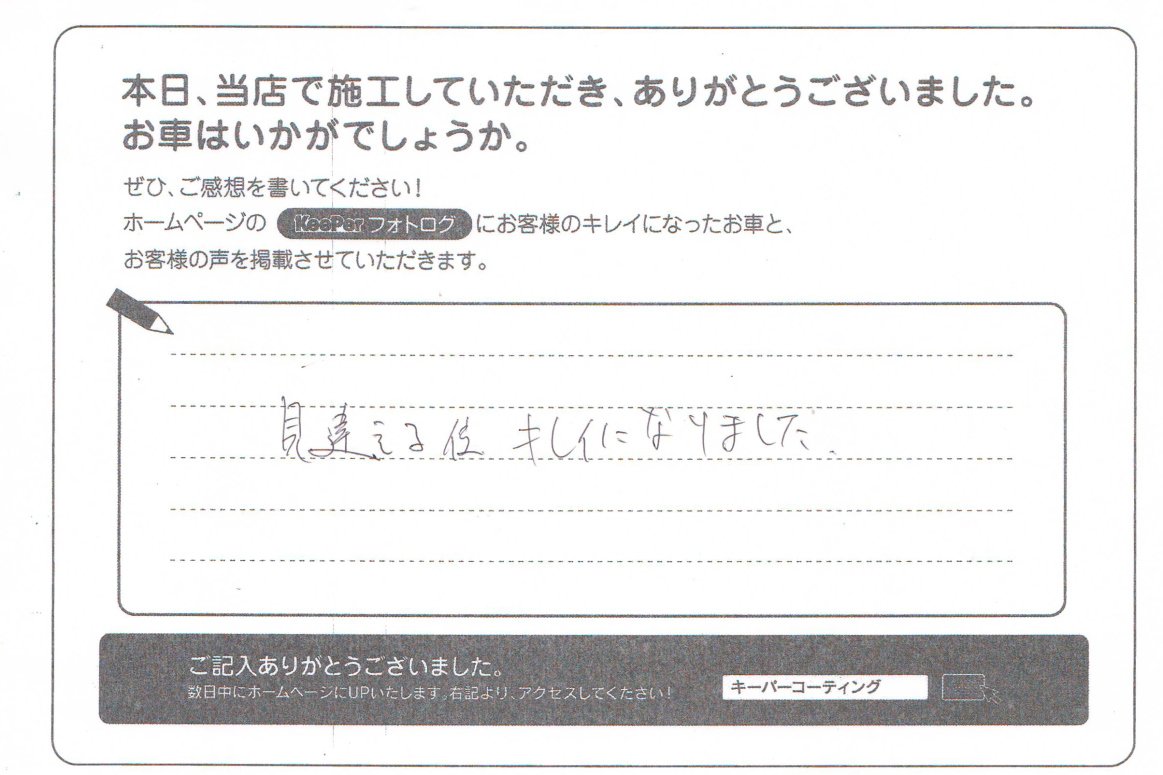 本日、当店で施工していただき、ありがとうございました。
お車はいかがでしょうか。
ぜひ、ご感想を書いてください!
ホームページの KeePer フォトログ にお客様のキレイになったお車と、
お客様の声を掲載させていただきます。
見違える位 キレイになりました.
ご記入ありがとうございました。
数日中にホームページにUPいたします。右記より、アクセスしてください!
キーパーコーティング